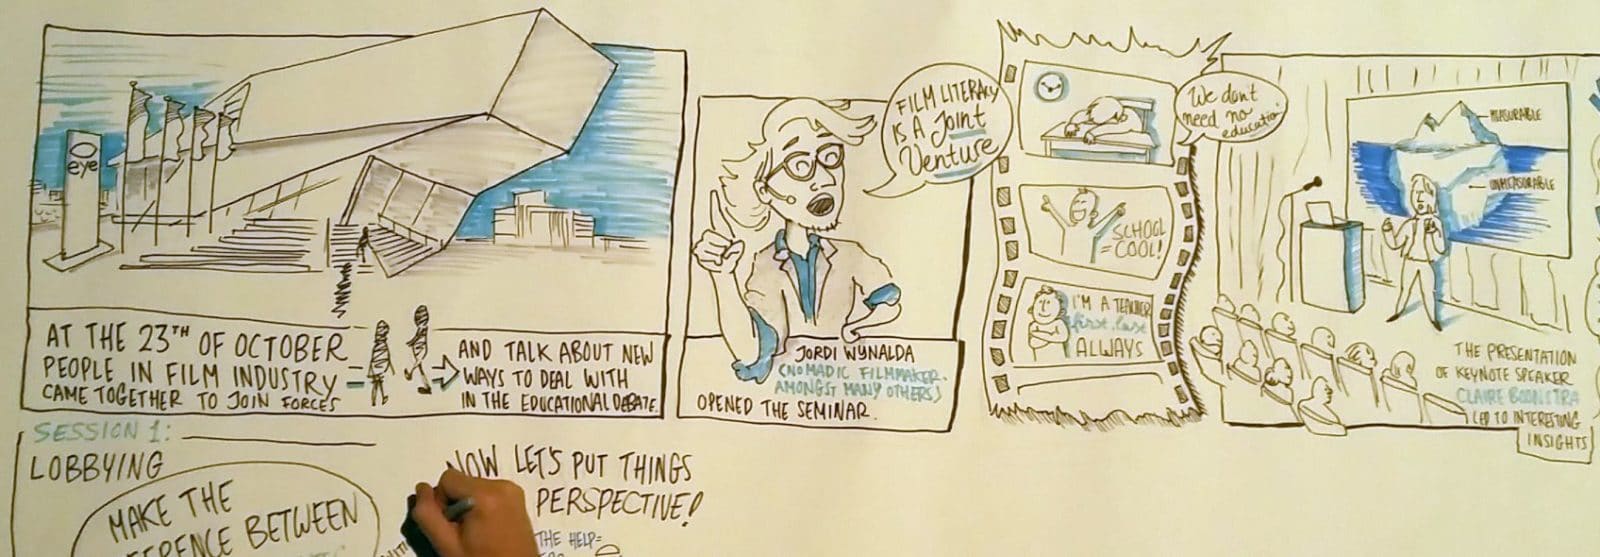 eye
AT THE 23TH OF OCTOBER
PEOPLE IN FILM INDUSTRY
CAME TOGETHER TO JOIN FORCES
AND TALK ABOUT NEW
WAYS TO DEAL WITH
IN THE EDUCATIONAL DEBATE.
FILM LITERACY
IS A JOINT
VENTURE
JORDI WYNALDA
(NOMADIC FILMMAKER,
AMONGST MANY OTHERS)
OPENED THE SEMINAR.
We don't
need no
education
SCHOOL
= COOL!
I'M A TEACHER
first, last
ALLWAYS
MEASURABLE
UNMEASURABLE
THE PRESENTATION
OF KEYNOTE SPEAKER
CLAIRE BOONSTRA
LED TO INTERESTING
INSIGHTS
SESSION 1:
LOBBYING
MAKE THE
FERENCE BETWEEN
NOW LET'S PUT THINGS
PERSPECTIVE!
THE HELP=